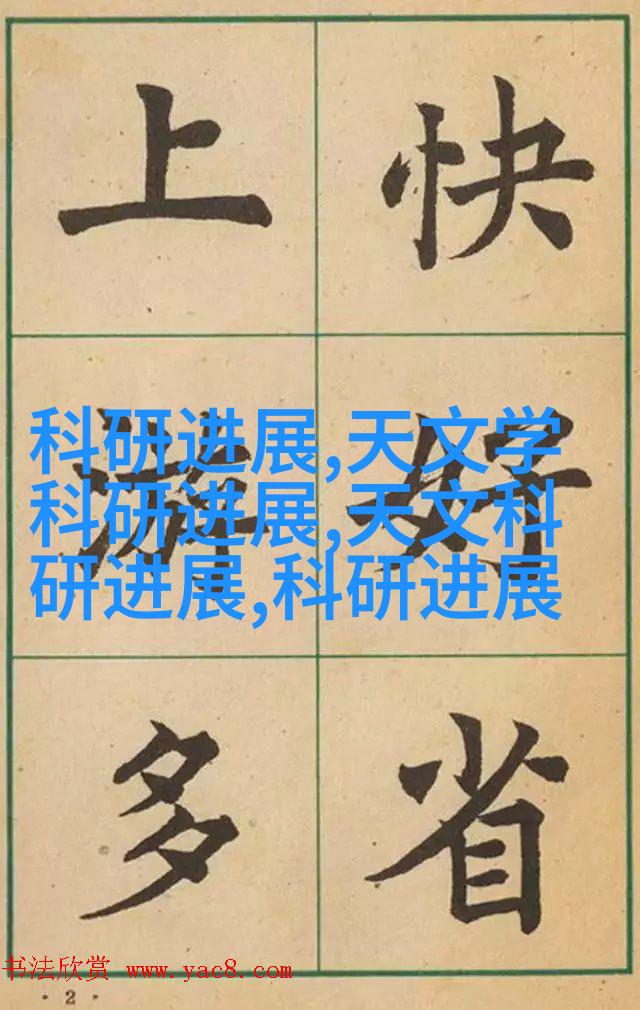 上 快
科研进展,天文学
科研进展,天文科
研进展,科研进展
游 好
多 省
书法欣赏 www.yac8.com
· 2 ·